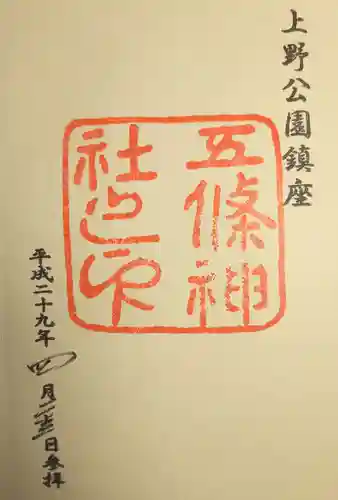 上野公園鎮座
五條神
社之印
平成二十九年四月二十五日参拝